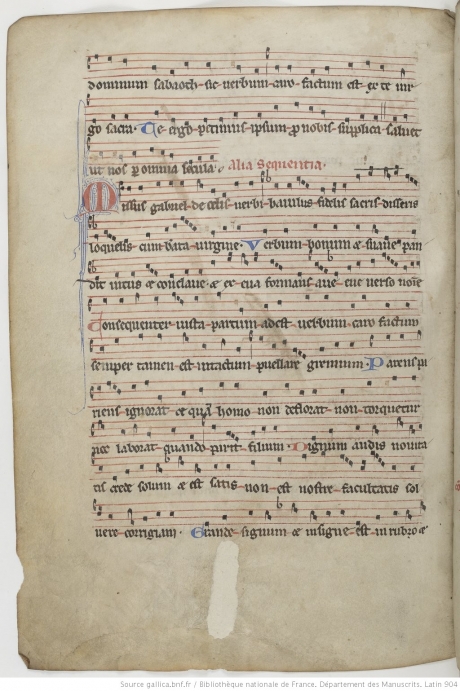 dominum sabaoth sic verbum caro factum est ex te vir
go sacra. Te ergo petimus ipsum pro nobis supplica salvet
ut nos per omnia secula. Alia sequentia.
Missus gabriel de celis verbi baiulus fidelis sacris disserit
loquelis cum beata virgine. Verbum bonum et suave pan
dit intus et conclave et ex eva formans ave eve verso nomine
Consequenter iuxta pactum adest verbum caro factum
semper tamen est intactum puellare gremium. Parens pa
riens ignorat et quam homo non deflorat non torquetur
nec laborat quando parit filium. Dignum audis novita
tis crede solum et est satis non est nostre facultatis sol
vere corrigiam. Grande signum et insigne est in rubro et
Source gallica.bnf.fr / Bibliothèque nationale de France, Département des Manuscrits, Latin 904